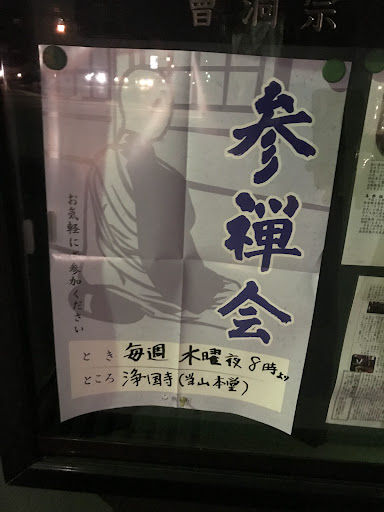 曹洞宗
参禅会
お気軽にご参加ください
とき 毎週 木曜夜8時より
ところ 浄国寺(当山本堂)